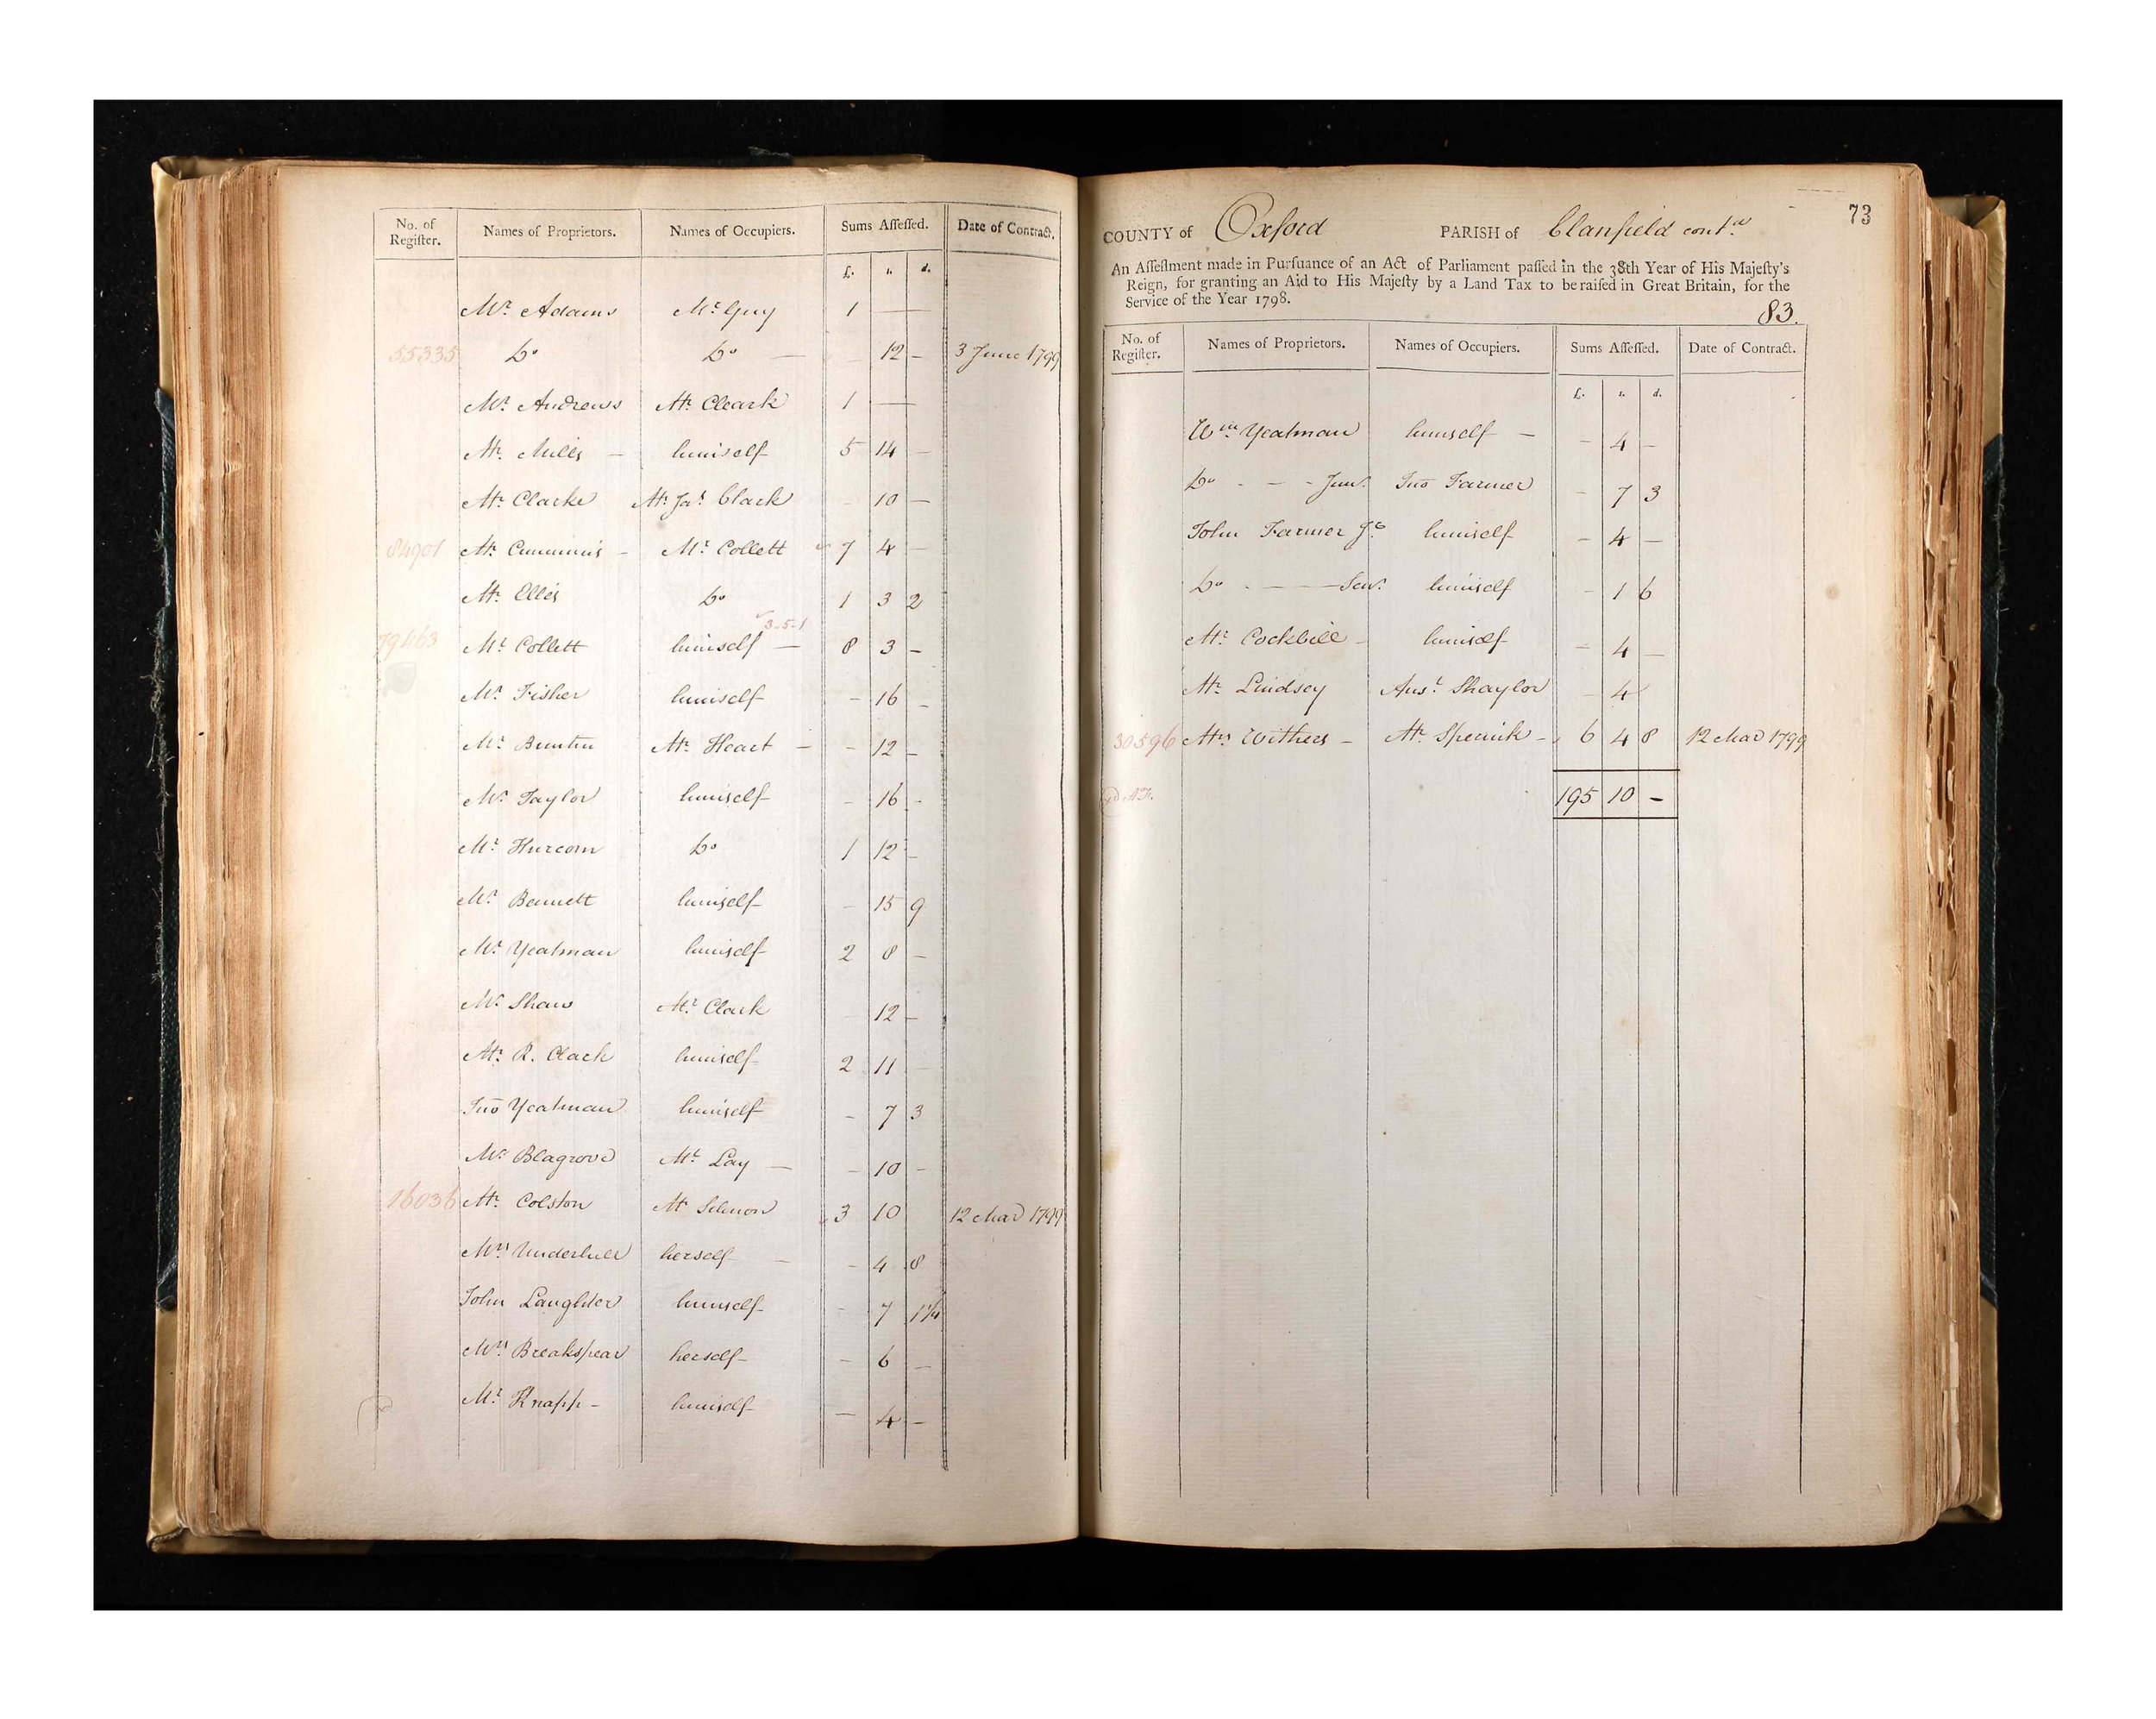 No. of Regiſter. Names of Proprietors. Names of Occupiers. Sums Aſſeſſed. Date of Contract.
£. s. d.
Mr. Adams Mr. Guy 1 —
55335 Do Do — 12 — 3 June 1799
Mr. Andrews Mr. Cleark 1 —
Mr. Mills — himself 5 14 —
Mr. Clarke Mr. Jas. Clark – 10 —
84901 Mr. Cummins – Mr. Collett 7 4 —
Mr. Ellis Do 1 3 2
3-5-1
79463 Mr. Collett himself — 8 3 –
Mr. Fisher himself – 16 –
Mr. Buntin Mr. Heart – – 12 –
Mr. Taylor himself – 16 -
Mr. Hurcom Do 1 12 –
Mr. Bennett himself – 15 9
Mr. Yeatman himself 2 8 –
Mr. Shaw Mr. Clark – 12 –
Mr. R. Clack himself 2 11 –
Jno Yeatman himself – 7 3
Mr. Blagrove Mr. Lay — – 10 –
16036 Mr. Colston Mr. 3 10 12 Mar 1799
Mrs. Underhill herself – – 4 8
John Laughter himself – 7 1¼
Mrs. Breakspear herself – 6 –
Mr. Knapp – himself – 4 –
73
COUNTY of Oxford PARISH of Clanfield contd
An Aſſeſſment made in Purſuance of an Act of Parliament paſſed in the 38th Year of His Majeſty's
Reign, for granting an Aid to His Majeſty by a Land Tax to be raiſed in Great Britain, for the
Service of the Year 1798.
83.
No. of Regiſter. Names of Proprietors. Names of Occupiers. Sums Aſſeſſed. Date of Contract.
£. s. d.
Wm. Yeatman himself — – 4 –
Do - – - Junr. Jno Farmer – 7 3
John Farmer Jr. himself – 4 —
Do - — Senr. himself – 1 6
Mr. Cockbill – himself – 4 —
Mr. Lindsey Ansl. Shaylor – 4
30596 Mrs. Withers – Mr. – 6 4 8 12 Mar 1799
195 10 –